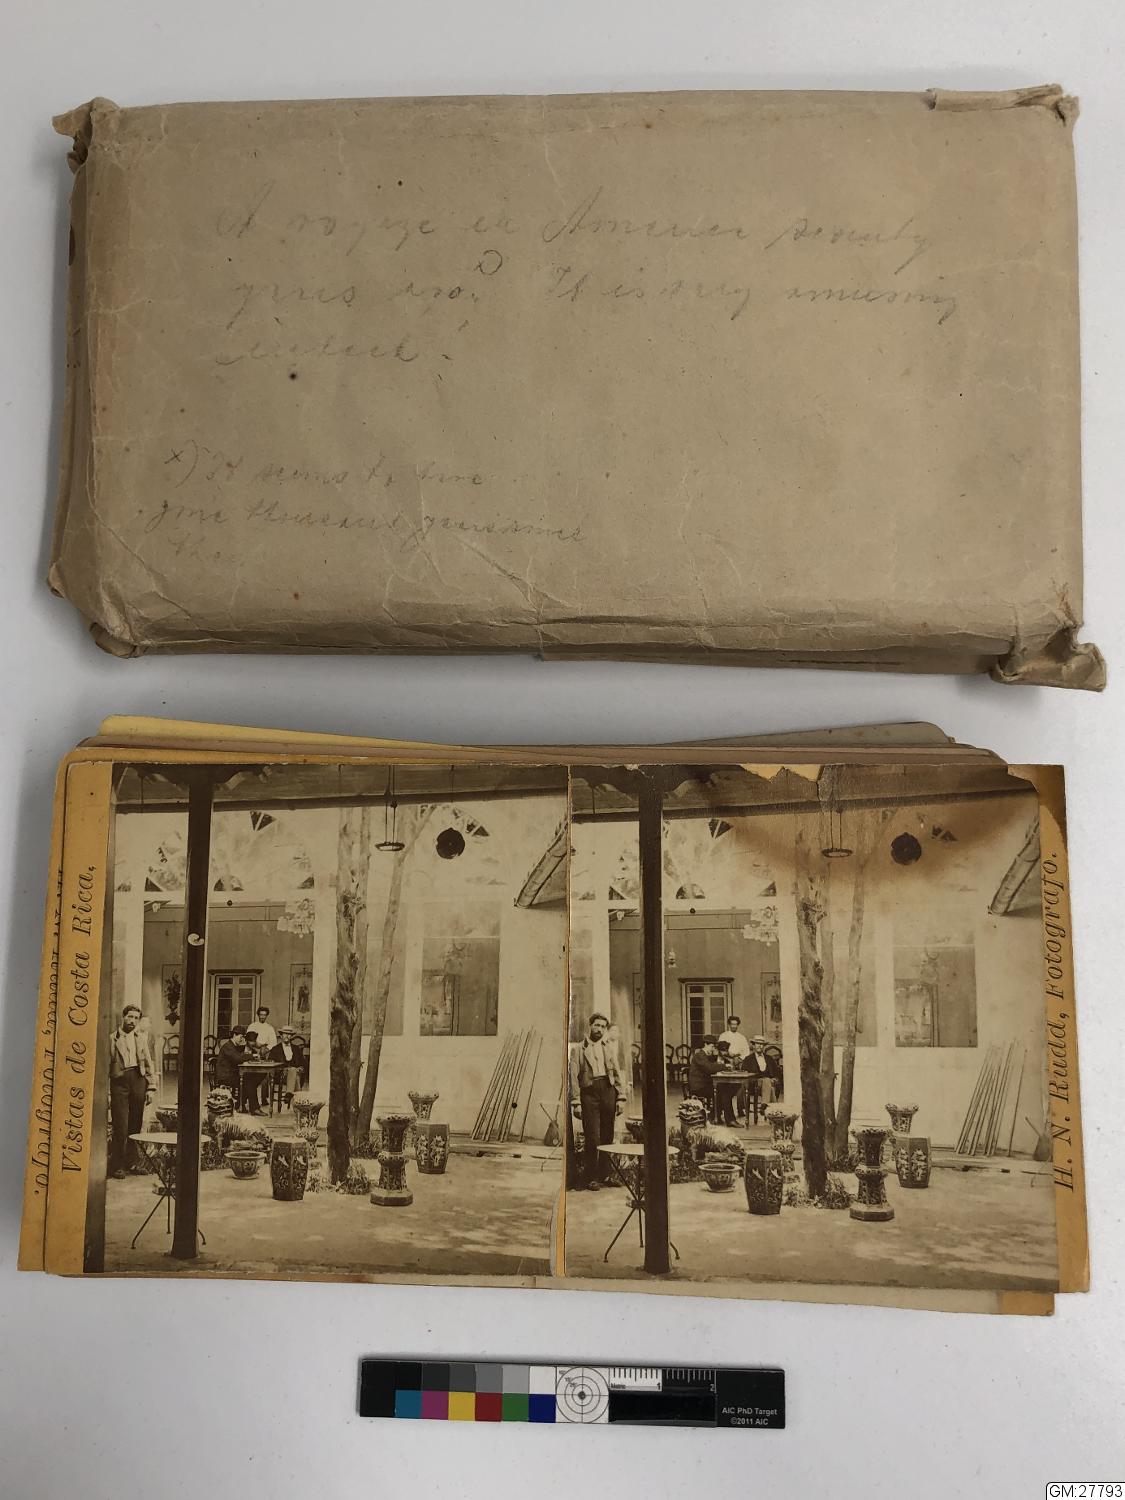 A voyage in America seventy
years ago. It is very amusing
indeed!
x) It seems to
one thousand years since
Vistas de Costa Rica,
H. N. Rudd, Fotografo.
Fotografo.
1 2
AIC PhD Target
©2011 AIC
GM:27793